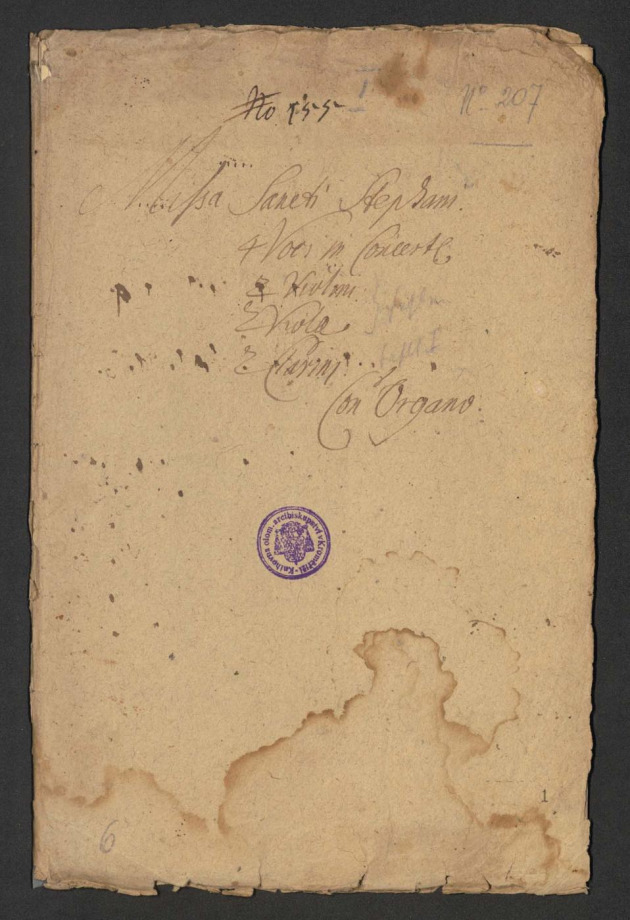 No 155 I
Nº 207
Missa Sancti Stephani.
4 Voci in Concerto
2 Violini
2 Viola
2 Clarini
Con Organo.
Knihovna olom. arcibiskupství v Kroměříži
1
6